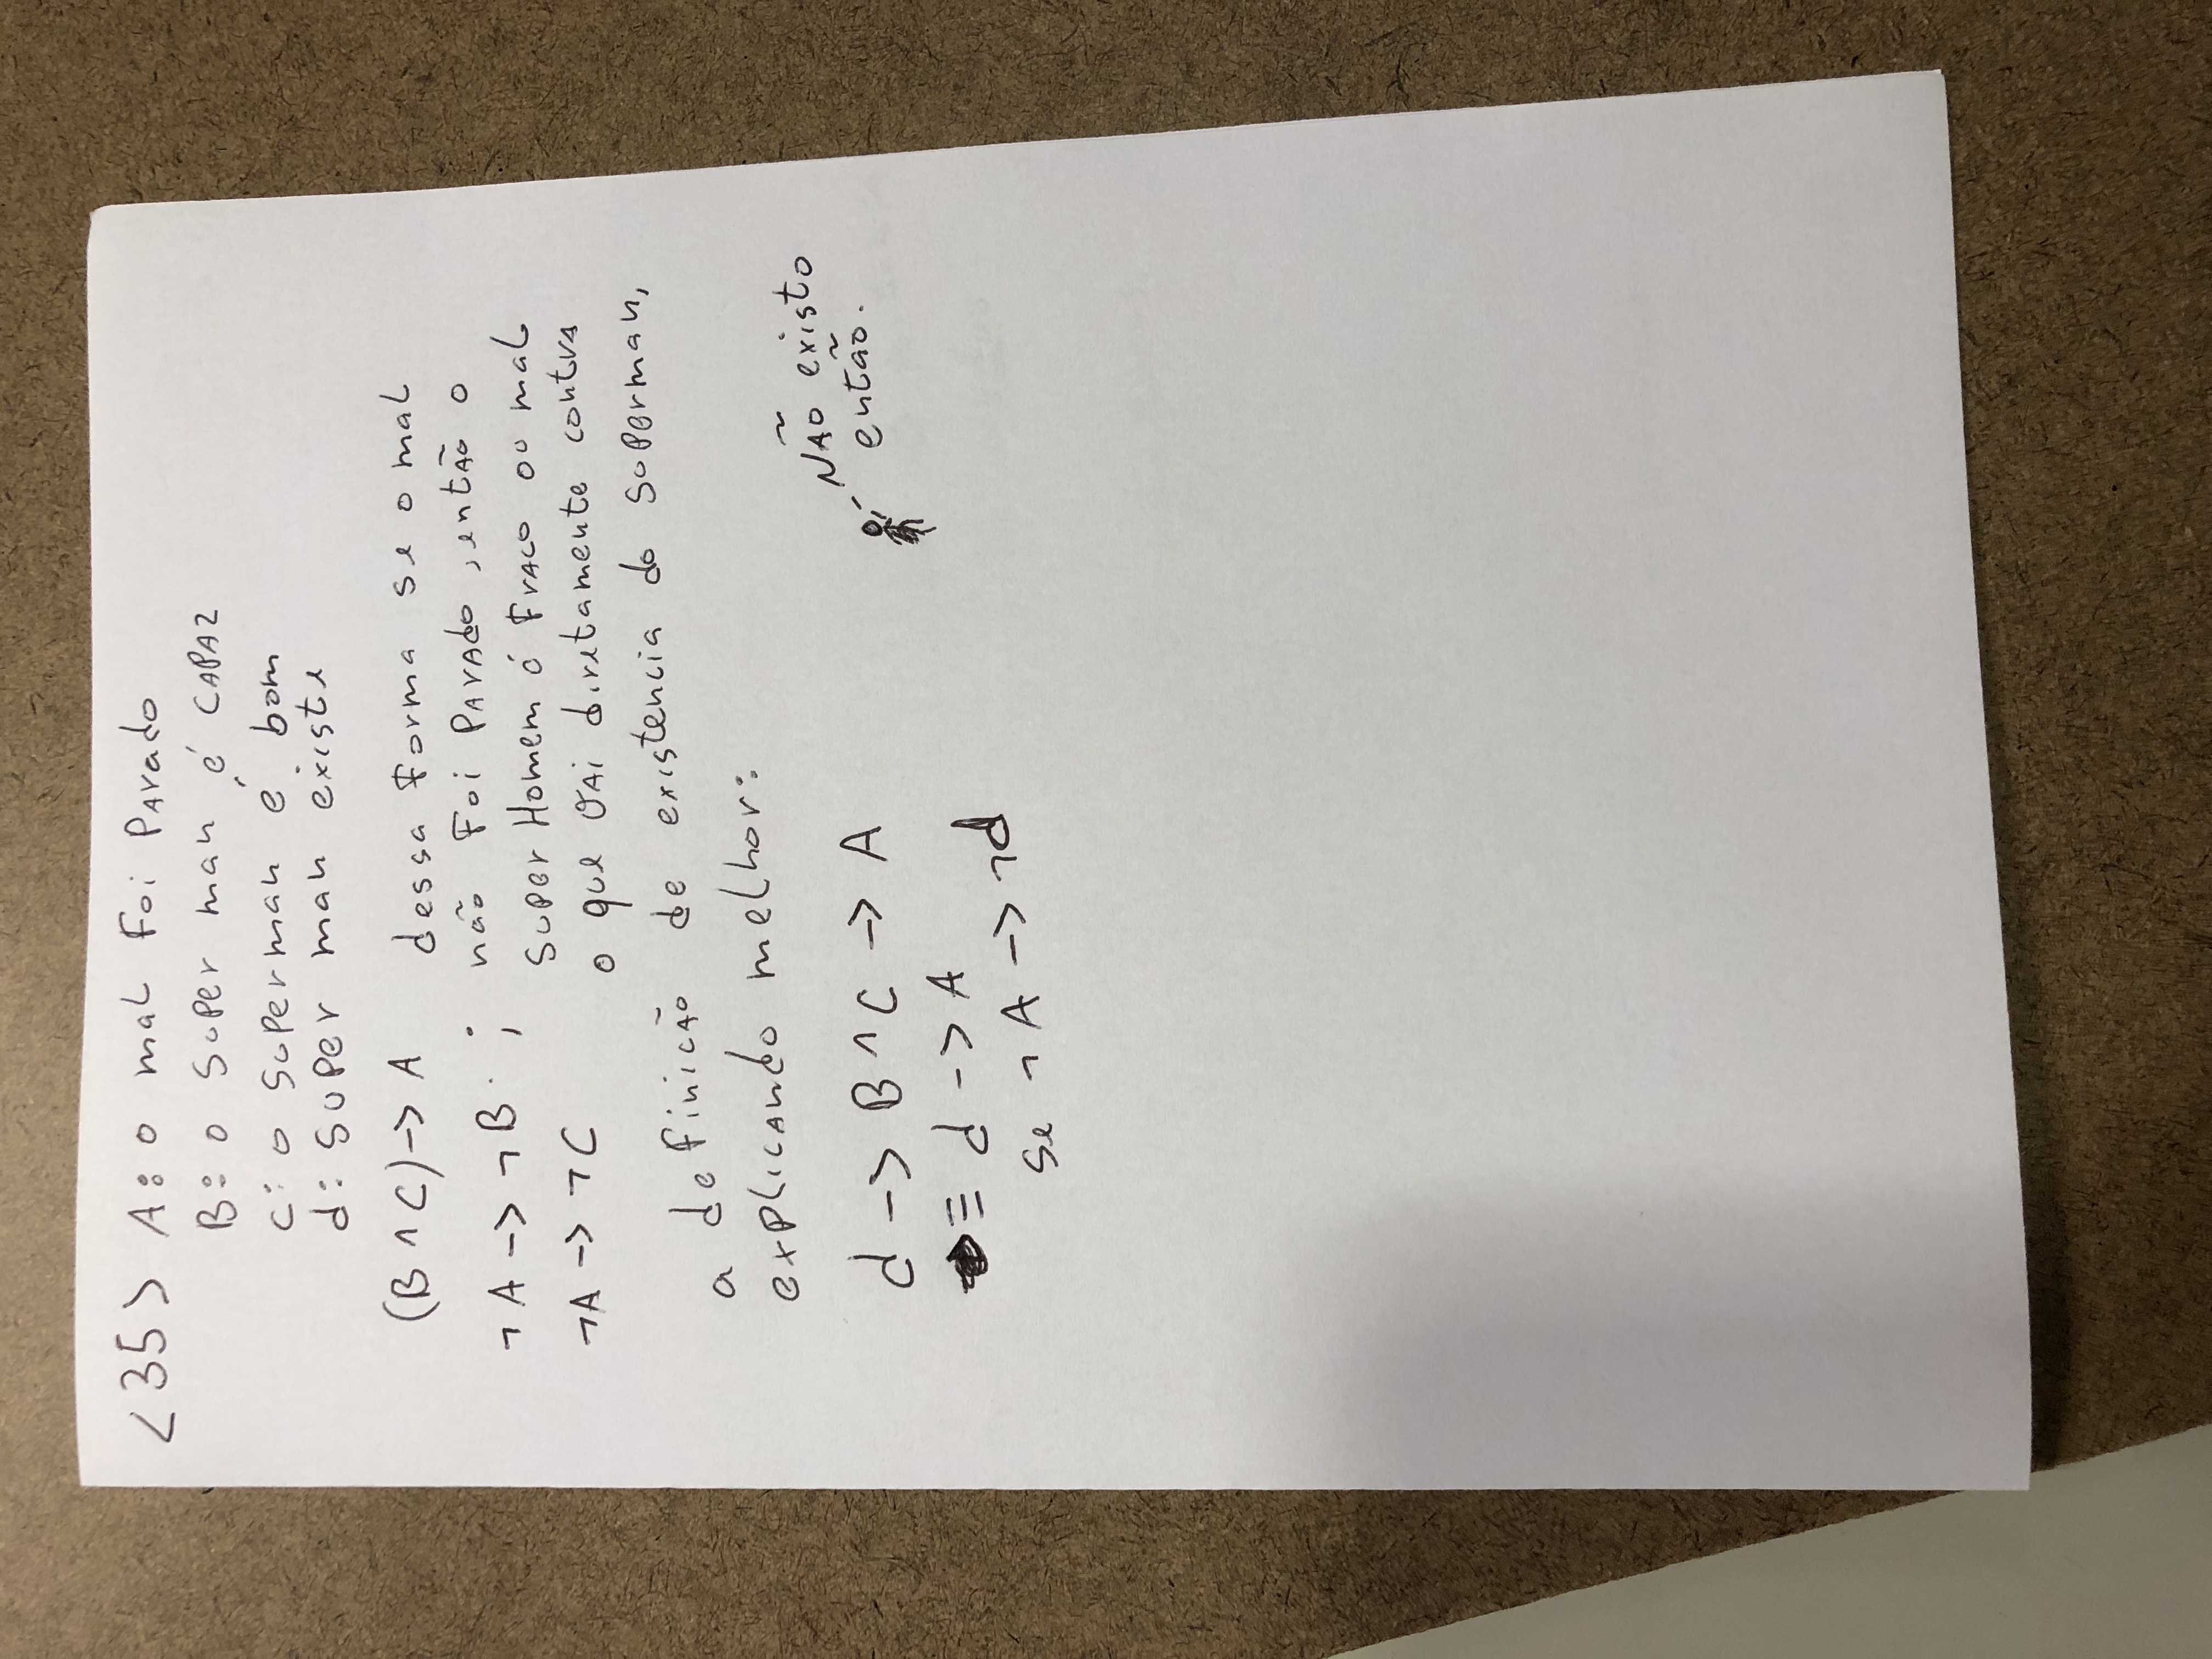 <35> A: o mal Foi PArado
B: o Super man é CAPAZ
C: o Superman é bom
d: Super man existe
(B ∧ C) -> A dessa Forma se o mal
¬A -> ¬B ; não Foi PArAdo, entÃo o
Super Homem é FrAco ou mal
¬A -> ¬C o que vAi diretamente contrA
a deFinicÃo de existencia do Superman,
explicAndo melhor:
NÃO existo
então.
d -> B ∧ C -> A
≡ d -> A
Se ¬A -> ¬d